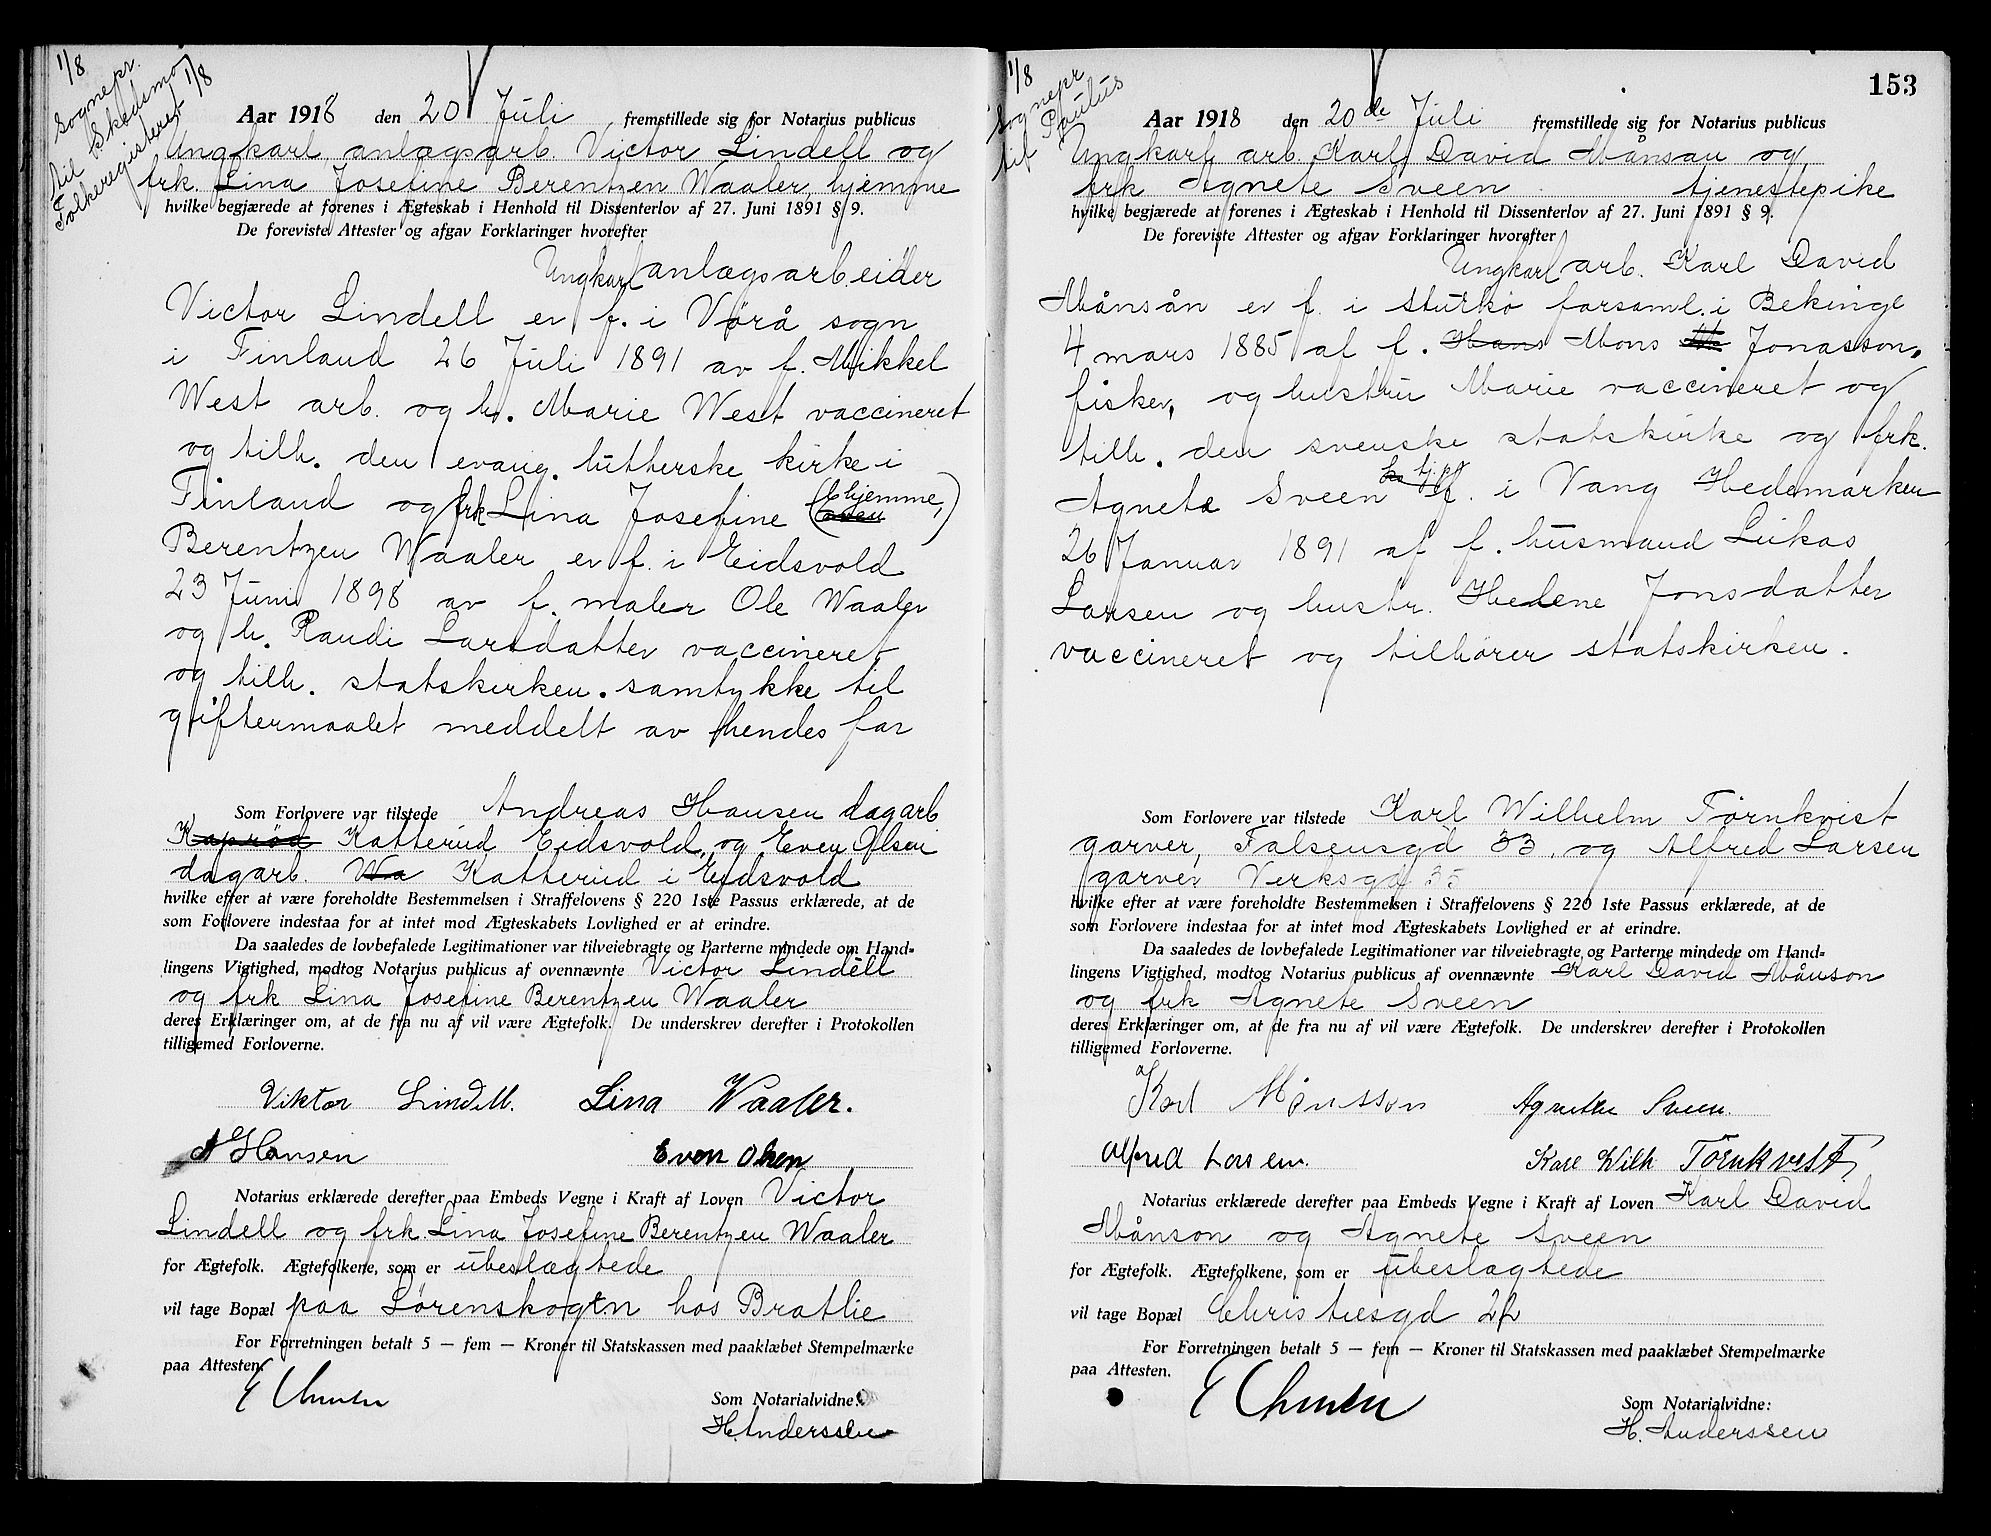 1/8
Sognepr.
til Skedsmo
Folkeregisteret 1/8
Aar 1918 den 20 Juli fremstillede sig for Notarius publicus
Ungkarl anlægsarb. Victor Lindell og
frk. Lina Josefine Berentzen Waaler, hjemme
hvilke begjærede at forenes i Ægteskab i Henhold til Dissenterlov af 27. Juni 1891 § 9.
De foreviste Attester og afgav Forklaringer hvorefter
Ungkarl anlægsarbeider
Victor Lindell er f. i Vørå sogn
i Finland 26 Juli 1891 av f. Mikkel
West arb. og h. Marie West vaccineret
og tilh. den evang. lutherske kirke i
Finland og frk Lina Josefine (hjemme,)
Berentzen Waaler er f. i Eidsvold
23 Juni 1898 av f. maler Ole Waaler
og h. Randi Larsdatter vaccineret
og tilh. statskirken. samtykke til
giftermaalet meddelt av hendes far
Som Forlovere var tilstede Andreas Hansen dagarb
Kaprød Katterud Eidsvold, og Even Olsen
dagarb. Wa Katterud i Eidsvold
hvilke efter at være foreholdte Bestemmelsen i Straffelovens § 220 1ste Passus erklærede, at de
som Forlovere indestaa for at intet mod Ægteskabets Lovlighed er at erindre.
Da saaledes de lovbefalede Legitimationer var tilveiebragte og Parterne mindede om Hand-
lingens Vigtighed, modtog Notarius publicus af ovennævnte Victor Lindell
og frk Lina Josefine Berentzen Waaler
deres Erklæringer om, at de fra nu af vil være Ægtefolk. De underskrev derefter i Protokollen
tilligemed Forloverne.
Viktor Lindell. Lina Waaler.
A Hansen Even Olsen
Notarius erklærede derefter paa Embeds Vegne i Kraft af Loven Victor
Lindell og frk Lina Josefine Berentzen Waaler
for Ægtefolk. Ægtefolkene, som er ubeslægtede
vil tage Bopæl paa Lørenskogen hos Bratlie
For Forretningen betalt 5 — fem — Kroner til Statskassen med paaklæbet Stempelmærke
paa Attesten.
Som Notarialvidne:
H. Anderssen
153
1/8
Sognepr
til Paulus
Aar 1918 den 20de Juli fremstillede sig for Notarius publicus
Ungkarl arb. Karl David Månsån og
frk Agnete Sveen tjenestepike
hvilke begjærede at forenes i Ægteskab i Henhold til Dissenterlov af 27. Juni 1891 § 9.
De foreviste Attester og afgav Forklaringer hvorefter
Ungkarl arb. Karl David
Månsån er f. i Sturkö forsaml. i Bekinge
4 mars 1885 af f. Hans Mons Jonasson,
fisker, og hustru Marie vaccineret og
tilh. den svenske statskirke og frk.
Agnete Sveen tj.p. f. i Vang Hedemarken
26 Januar 1891 af f. husmand Lukas
Larsen og hustr. Helene Jonsdatter
vaccineret og tilhører statskirken.
Som Forlovere var tilstede Karl Wilhelm Törnkvist
garver, Falsensgd 33, og Alfred Larsen
garver Verksgd 35
hvilke efter at være foreholdte Bestemmelsen i Straffelovens § 220 1ste Passus erklærede, at de
som Forlovere indestaa for at intet mod Ægteskabets Lovlighed er at erindre.
Da saaledes de lovbefalede Legitimationer var tilveiebragte og Parterne mindede om Hand-
lingens Vigtighed, modtog Notarius publicus af ovennævnte Karl David Månson
og frk Agnete Sveen
deres Erklæringer om, at de fra nu af vil være Ægtefolk. De underskrev derefter i Protokollen
tilligemed Forloverne.
Karl Månsson Agnethe Sveen.
Alfred Larsen. Karl Wilh Törnkvist.
Notarius erklærede derefter paa Embeds Vegne i Kraft af Loven Karl David
Månson og Agnete Sveen
for Ægtefolk. Ægtefolkene, som er ubeslægtede
vil tage Bopæl Christiesgd 22
For Forretningen betalt 5 — fem — Kroner til Statskassen med paaklæbet Stempelmærke
paa Attesten.
Som Notarialvidne:
H. Anderssen